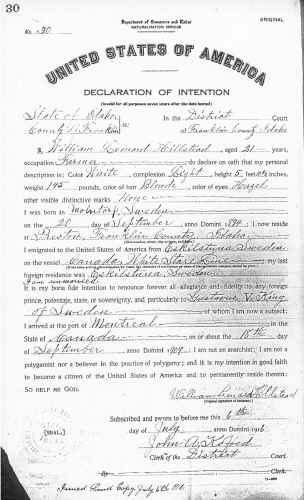 30
ORIGINAL
Department of Commerce and Labor
NATURALIZATION SERVICE
No. 30
UNITED STATES OF AMERICA
DECLARATION OF INTENTION
(Invalid for all purposes seven years after the date hereof)
State of Idaho
County of Franklin
ss:
In the District Court
of Franklin County Idaho
I, William Lenard Hillstead, aged 21 years,
occupation Farmer, do declare on oath that my personal
description is: Color White, complexion Light, height 5 feet inches,
weight 145 pounds, color of hair Blonde, color of eyes Hazel
other visible distinctive marks None
I was born in Sweden
on the 20 day of September, anno Domini ; I now reside
at Preston Franklin County Idaho
I emigrated to the United States of America from Eskilstuna Sweden
on the vessel Canada White Star Line; my last
foreign residence was Eskilstuna Sweden
I am unmarried
It is my bona fide intention to renounce forever all allegiance and fidelity to any foreign
prince, potentate, state, or sovereignty, and particularly to Gustavus V King
of Sweden, of whom I am now a subject; I
arrived at the port of Montreal, in the
State of Canada, on or about the 18th day
of September, anno Domini 1909; I am not an anarchist; I am not a
polygamist nor a believer in the practice of polygamy; and it is my intention in good faith
to become a citizen of the United States of America and to permanently reside therein:
SO HELP ME GOD.
William Lenard Hillstead
Subscribed and sworn to before me this 6th
[SEAL.]
day of July, anno Domini 1916
John A.
Clerk of the District Court.
Issued Copy July 6th 1916